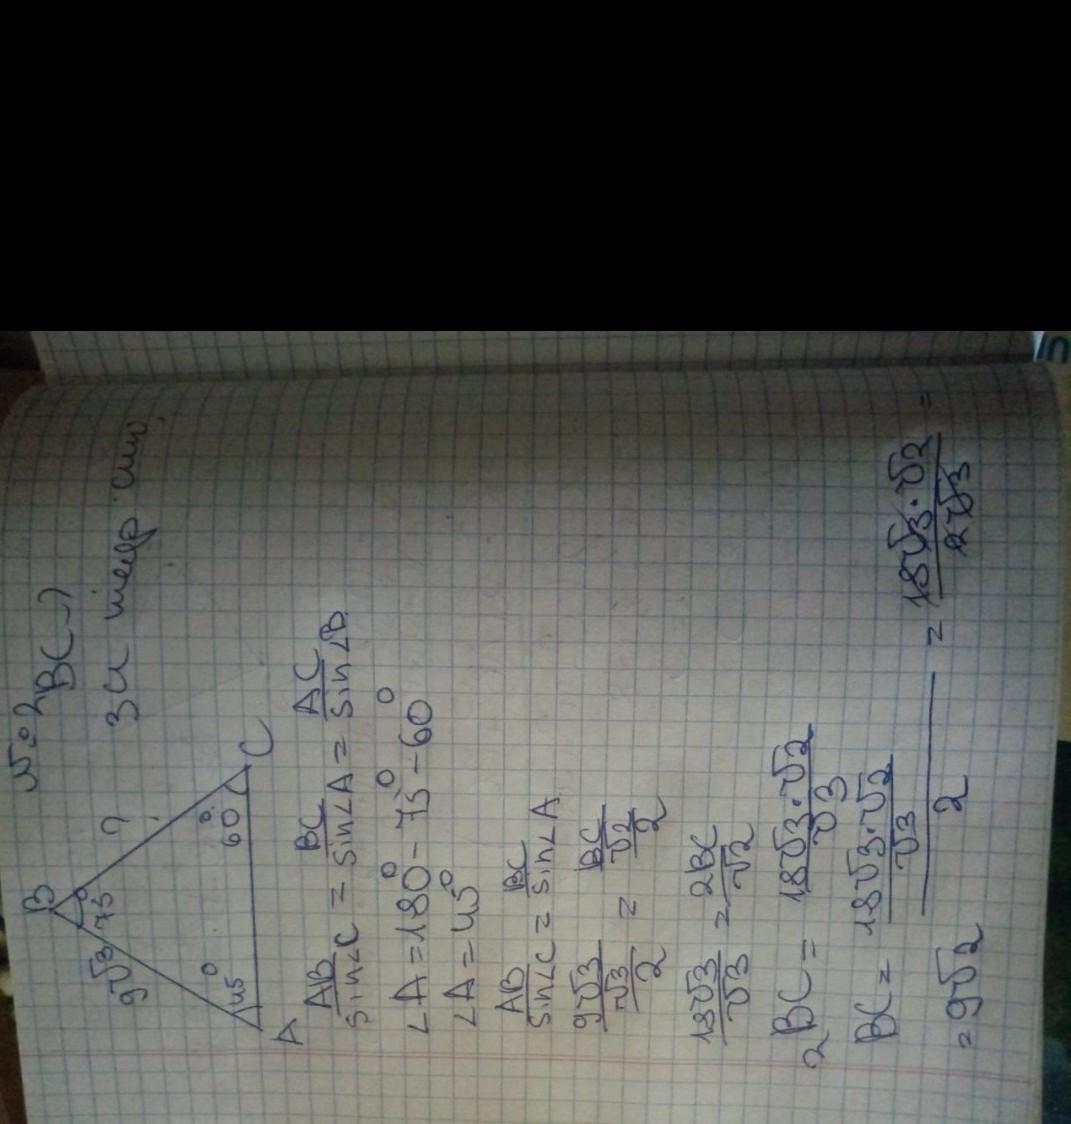 №2
B
9√3
75°
?
BC-?
45°
60°
A
C
AB/sin∠C = BC/sin∠A = AC/sin∠B
∠A = 180° - 75° - 60°
∠A = 45°
AB/sin∠C = BC/sin∠A
9√3/(√3/2) = BC/(√2/2)
18√3/√3 = 2BC/√2
2BC = 18√3·√2/√3
BC = (18√3·√2/√3)/2 = 18√3·√2/2√3 =
= 9√2